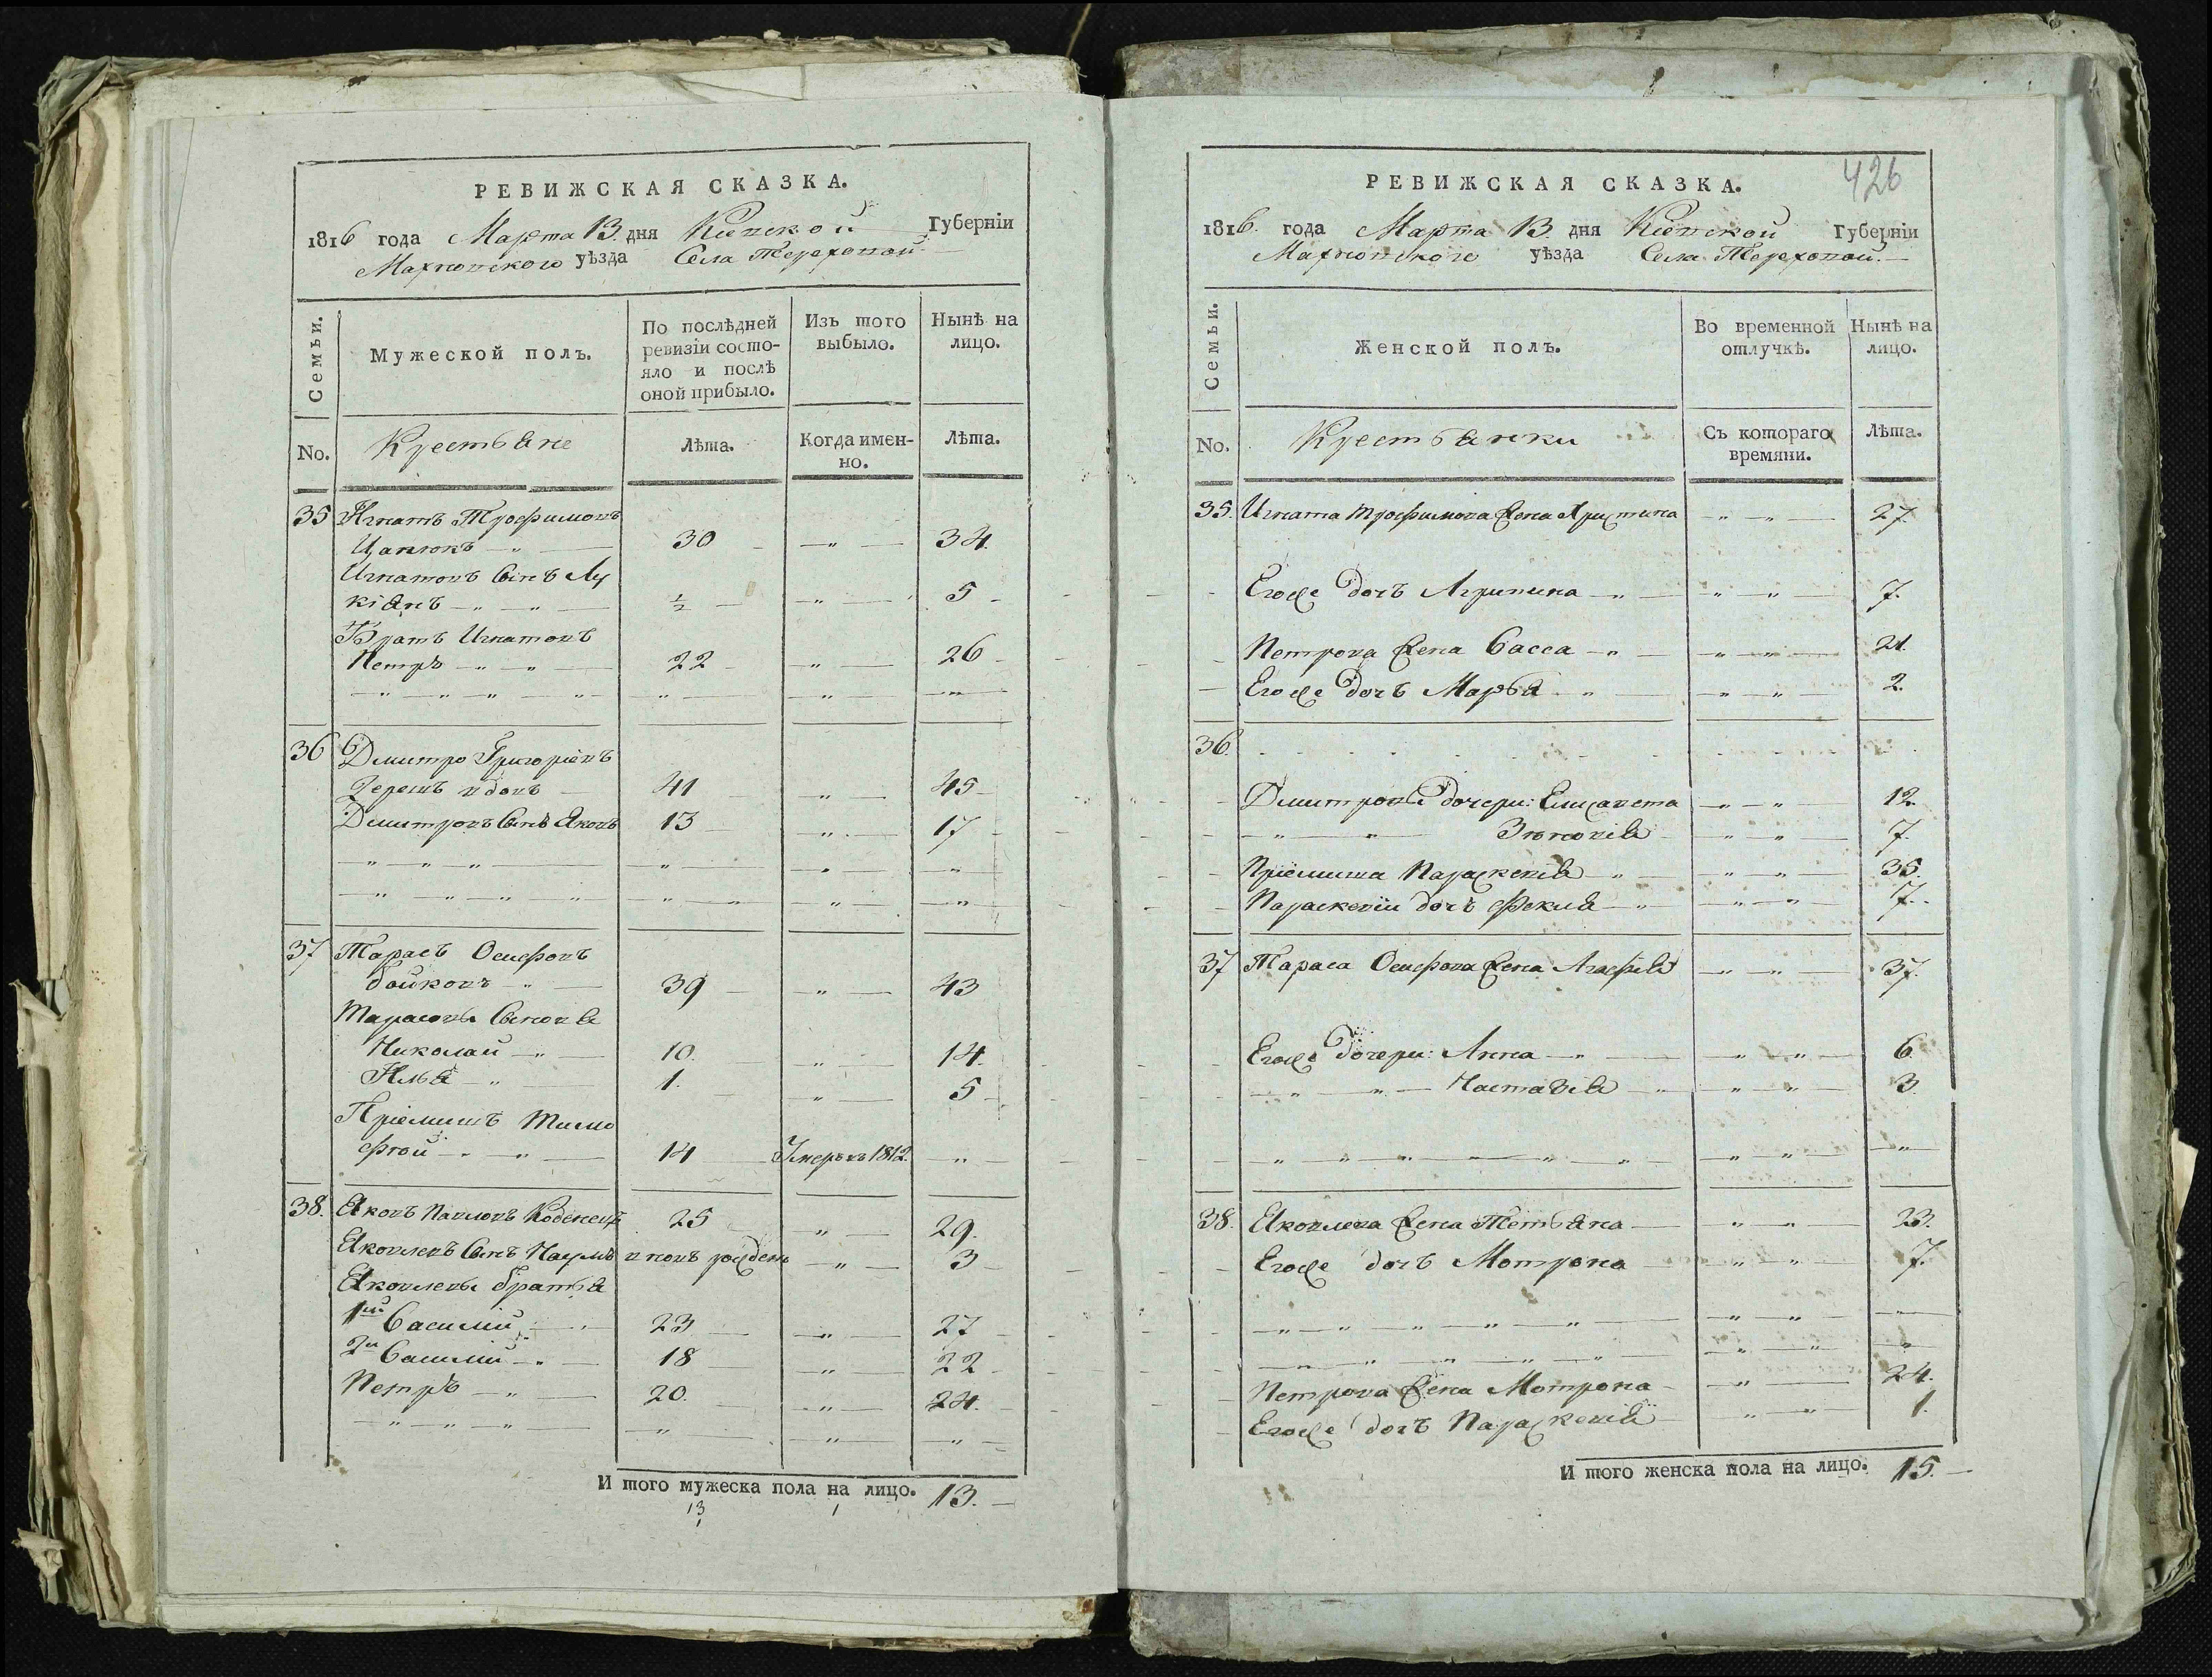 РЕВИЖСКАЯ СКАЗКА.
1816 года Марта 13 дня Кіевской Губерніи
Махновского уѣзда Села Тереховой
Семьи.
Мужеской полъ.
По послѣдней ревизіи состояло и послѣ оной прибыло.
Изъ того выбыло.
Нынѣ на лицо.
No. Крестьяне Лѣта. Когда именно. Лѣта.
35 Игнатъ Трофимовъ
Цапюкъ 30 34.
Игнатовъ Сынъ Лу
кіянъ ½ 5
Братъ Игнатовъ
Петръ 22 26
36 Дмитро Григоріевъ
вдовъ 41 45
Дмитровъ Сынъ Яковъ 13 17
37 Тарасъ Осифовъ
Бойковъ 39 43
Тарасовы Сыновя
Николай 10. 14.
Илья 1. 5
Пріемышъ Тимо
фтой 14 Умеръ въ 1812.
38. Яковъ Павловъ Коденецъ 25 29.
Яковлевъ Сынъ Наумъ вновь рожденъ 3
Яковлевы братья
1й Василій 23 27
2й Василій 18 22
Петръ 20. 24.
И того мужеска пола на лицо. 13.
13 1
1
426
РЕВИЖСКАЯ СКАЗКА.
1816. года Марта 13 дня Кіевской Губерніи
Махновского уѣзда Села Тереховой.
Семьи.
Женской полъ.
Во временной отлучкѣ.
Нынѣ на лицо.
No. Крестьянки Съ котораго времяни. Лѣта.
35. Игната Трофимова жена Христина 27.
Егоже дочъ Агрипина 7.
Петрова жена Васса 21.
Егоже дочъ Марья 2.
36.
Дмитровы дочери: Елисавета 12.
Зѣновія 7.
Пріемыша Параскевія 35.
Параскевіи дочъ Фекла 7.
37 Тараса Осифова жена Агафія 37.
Егоже дочери: Анна 6.
Настазія 3.
38. Яковлева жена Тетьяна 23.
Егоже дочъ Мотрона 7.
Петрова жена Мотрона 24.
Егоже дочъ Параскевія 1.
И того женска пола на лицо. 15.